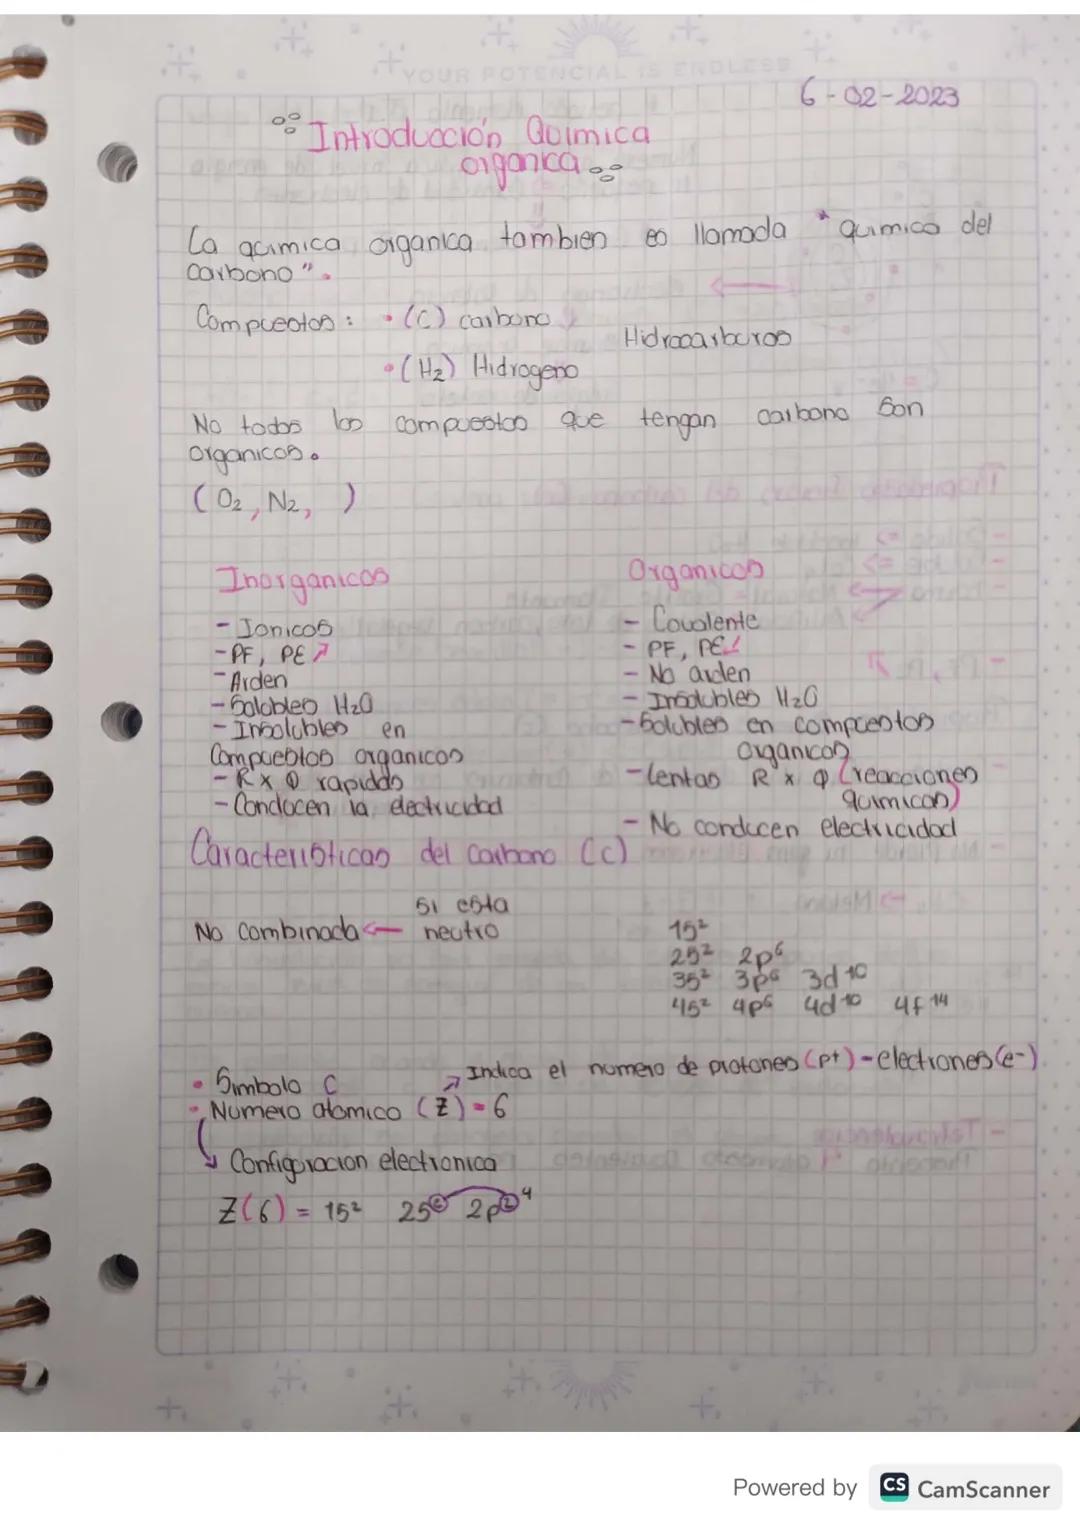 YOUR POTENCIAL IS ENDLESS
6-02-2023
Introducción Quimica
organica
La quimica organica tambien es llamada "quimica del
carbono".
Compuestos: • (C) carbono
Hidrocarburos
• (H2) Hidrogeno
No todos los compuestos que tengan carbono son
organicos.
(O2, N2, )
Inorganicos
- Ionicos
- PF, PE ↗
- Arden
- Solubles H2O
- Insolubles en
Compuestos organicos
- R x Q rapidas
- Conducen la electricidad
Organicos
- Covalente
- PF, PE ↓
- No arden
- Insolubles H2O
- Solubles en compuestos
organicos
- lentas R x Q (reacciones
quimicas)
- No conducen electricidad
Caracteristicas del Carbono (C)
si esta
No combinada ← neutro
1s²
2s² 2p⁶
3s² 3p⁶ 3d¹⁰
4s² 4p⁶ 4d¹⁰ 4f¹⁴
↗ Indica el numero de protones (p+) - electrones (e-).
• Simbolo C
• Numero atomico (Z) = 6
↳ Configuracion electronica
Z(6) = 1s² 2s² 2p² ⁴
Powered by CS CamScanner